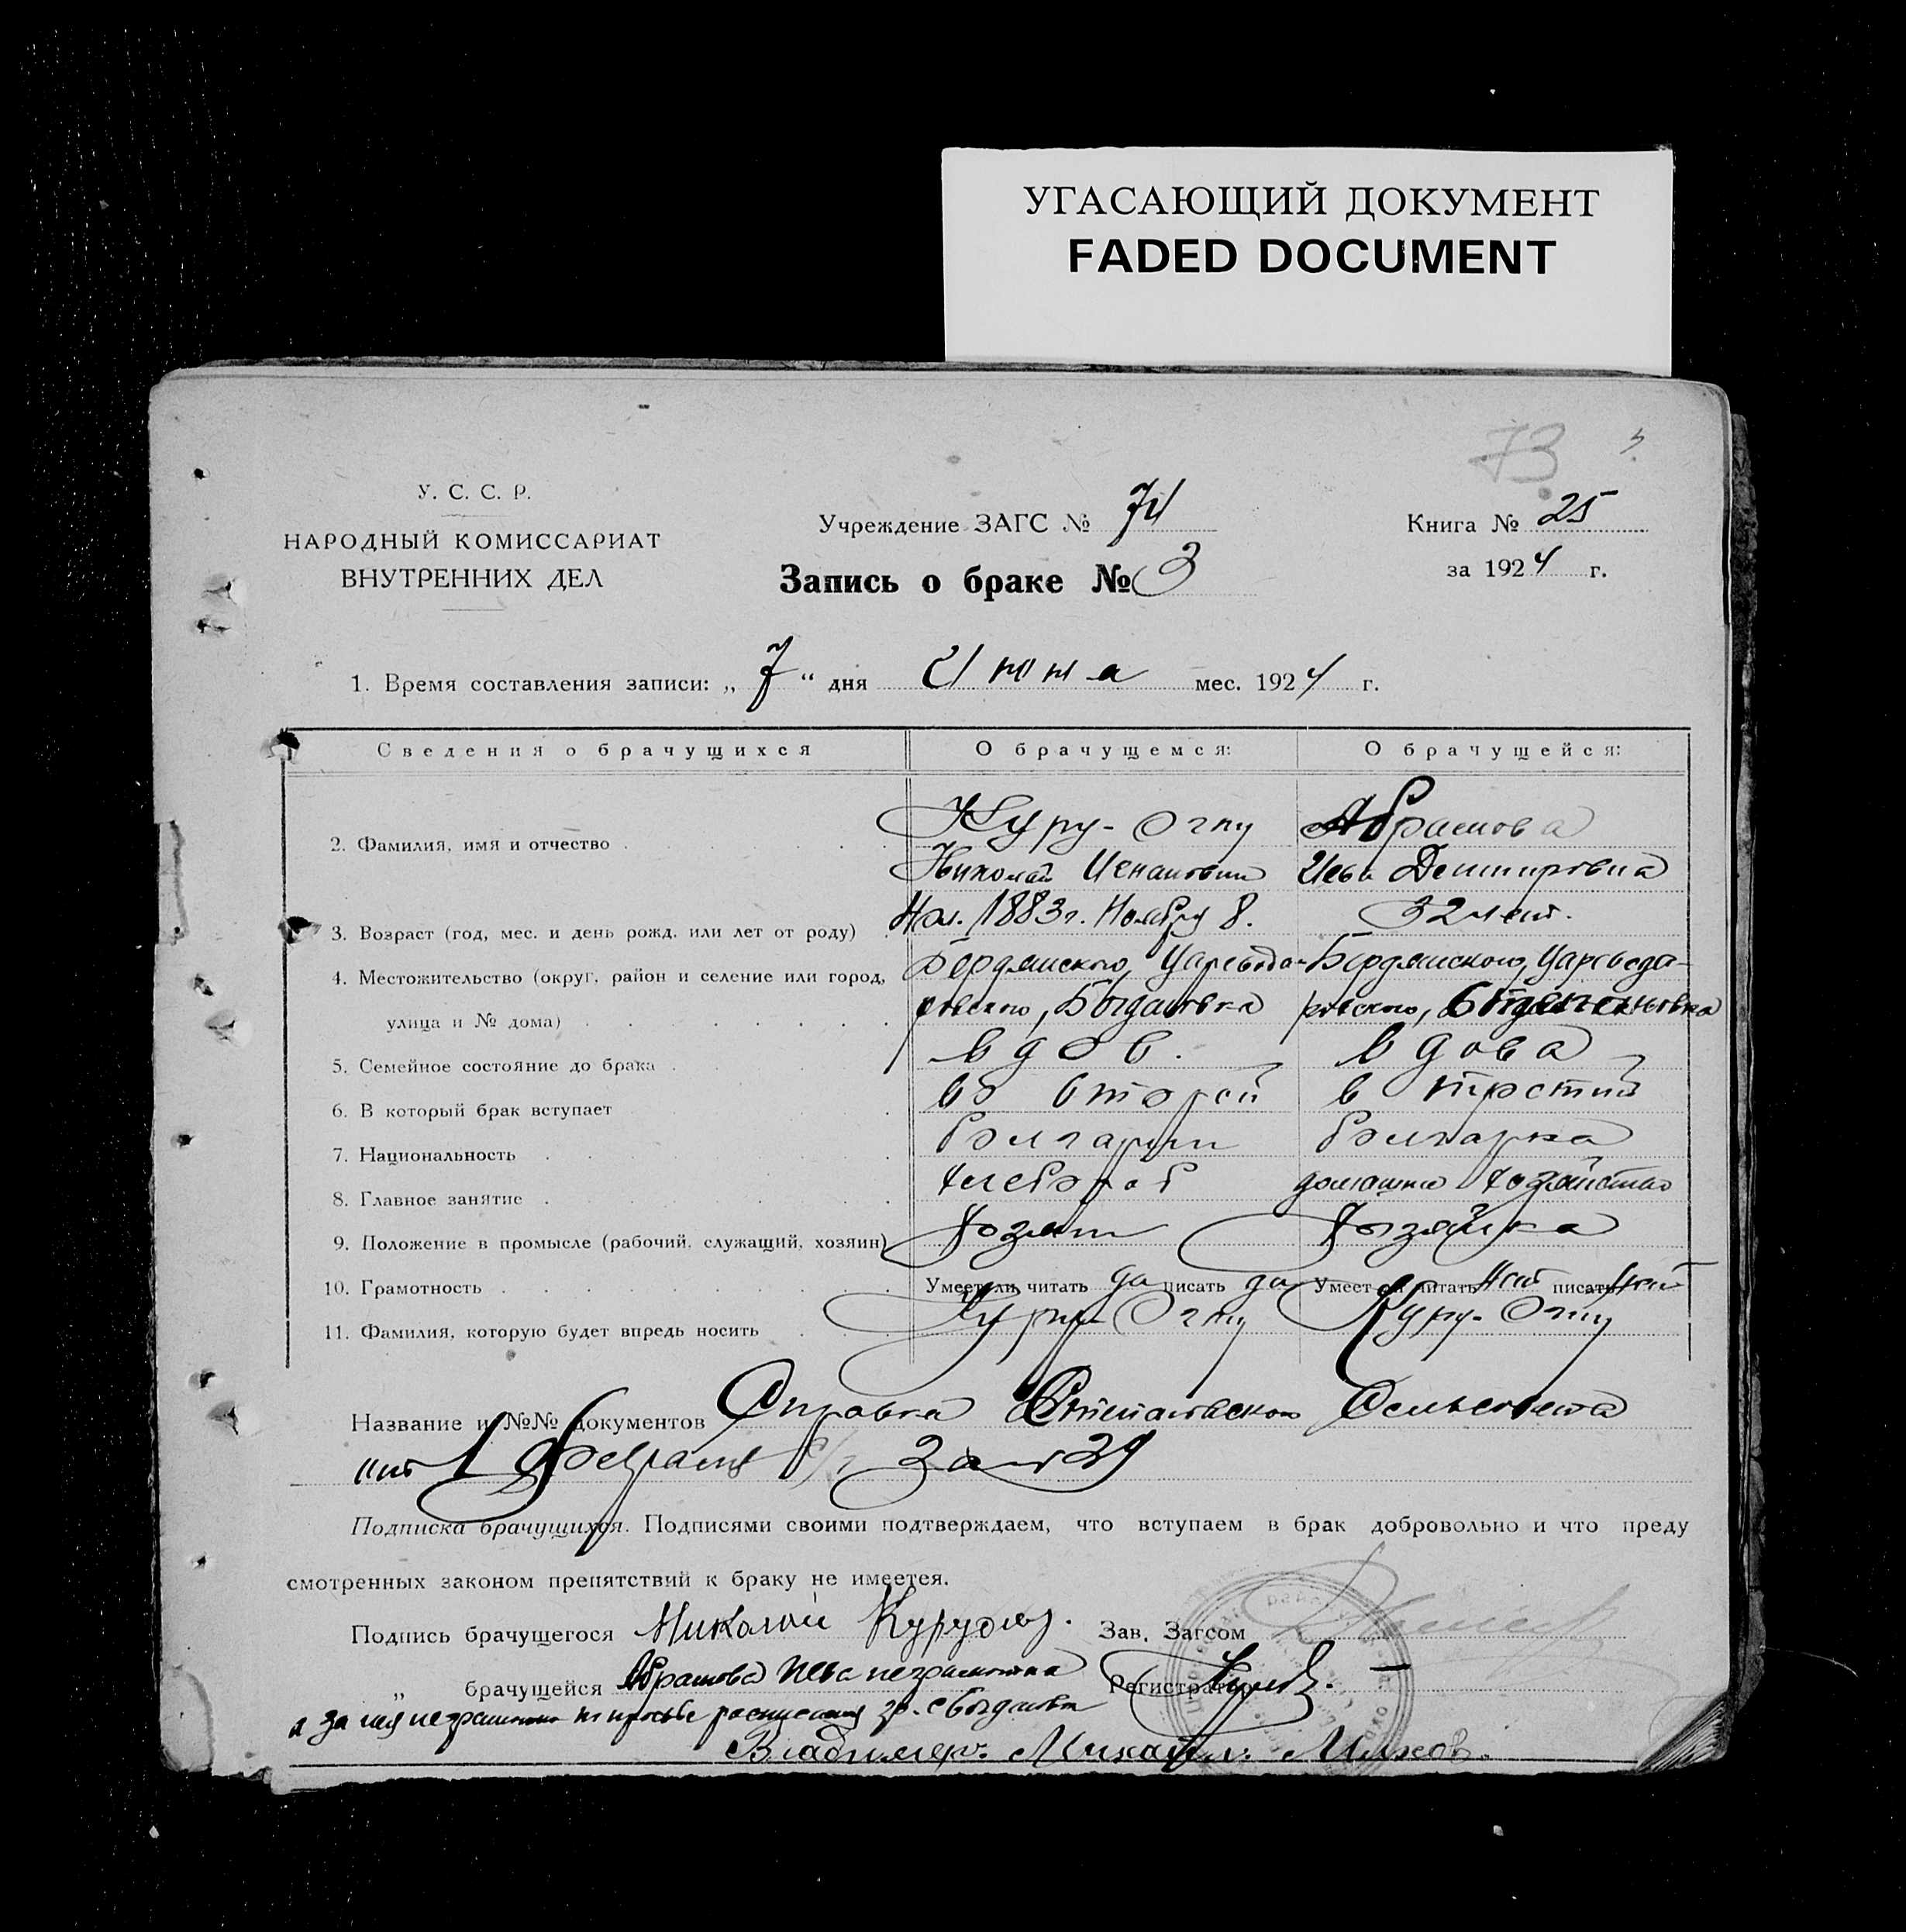 УГАСАЮЩИЙ ДОКУМЕНТ
FADED DOCUMENT
73
У. С. С. Р.
НАРОДНЫЙ КОМИССАРИАТ
ВНУТРЕННИХ ДЕЛ
Учреждение ЗАГС № 74
Книга № 25
Запись о браке № 3
за 1924 г.
1. Время составления записи: „ 7 “ дня Июня мес. 1924 г.
Сведения о брачущихся О брачущемся: О брачущейся:
2. Фамилия, имя и отчество Куру-Оглу Абрамова
Николай
3. Возраст (год, мес. и день рожд. или лет от роду) 1883 г. Ноября 8. 32 лет.
4. Местожительство (округ, район и селение или город, Бердянского, Царевода- Бердянского, Царевода-
улица и № дома) ровского, Богдановка ровского,
5. Семейное состояние до брака вдов. вдова
6. В который брак вступает во второй в третий
7. Национальность болгарин болгарка
8. Главное занятие хлебороб домашнее хозяйство
9. Положение в промысле (рабочий, служащий, хозяин) Хозяин Хозяйка
10. Грамотность Умеет ли читать да писать да Умеет ли читать нет писать нет
11. Фамилия, которую будет впредь носить Куру-Оглу Куру-Оглу
Название и №№ документов Справка Сельсовета
от 1 Февраля с/г за № 29
Подписка брачущихся. Подписями своими подтверждаем, что вступаем в брак добровольно и что преду
смотренных законом препятствий к браку не имеется.
Подпись брачущегося Николай Куруоглу. Зав. Загсом
„ брачущейся Абрамова неграмотна Регистратор
а за нея неграмотно по просьбе росписался гр. с Богдановки
Владимер. Михайл.